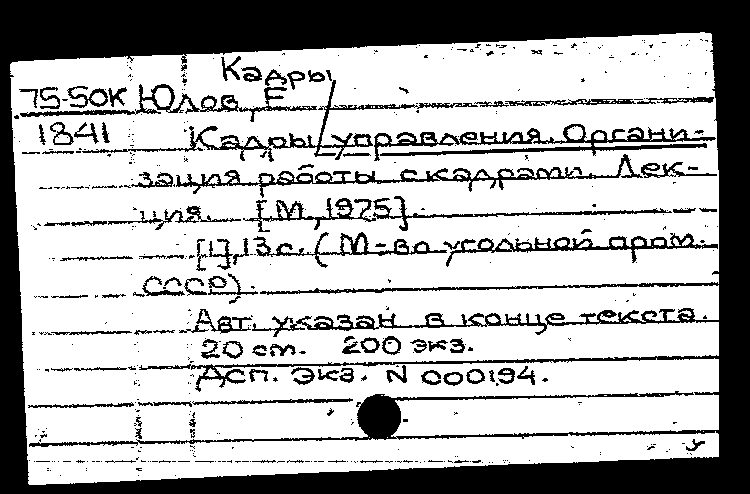 Кадры
75-50К Юлов, Е
1841 Кадры управления. Органи-
зация работы с кадрами. Лек-
ция. [М., 1975].
[1], 13 с. (М-во угольной пром.
СССР).
Авт. указан в конце текста.
20 см. 200 экз.
Дсп. Экз. N 000194.